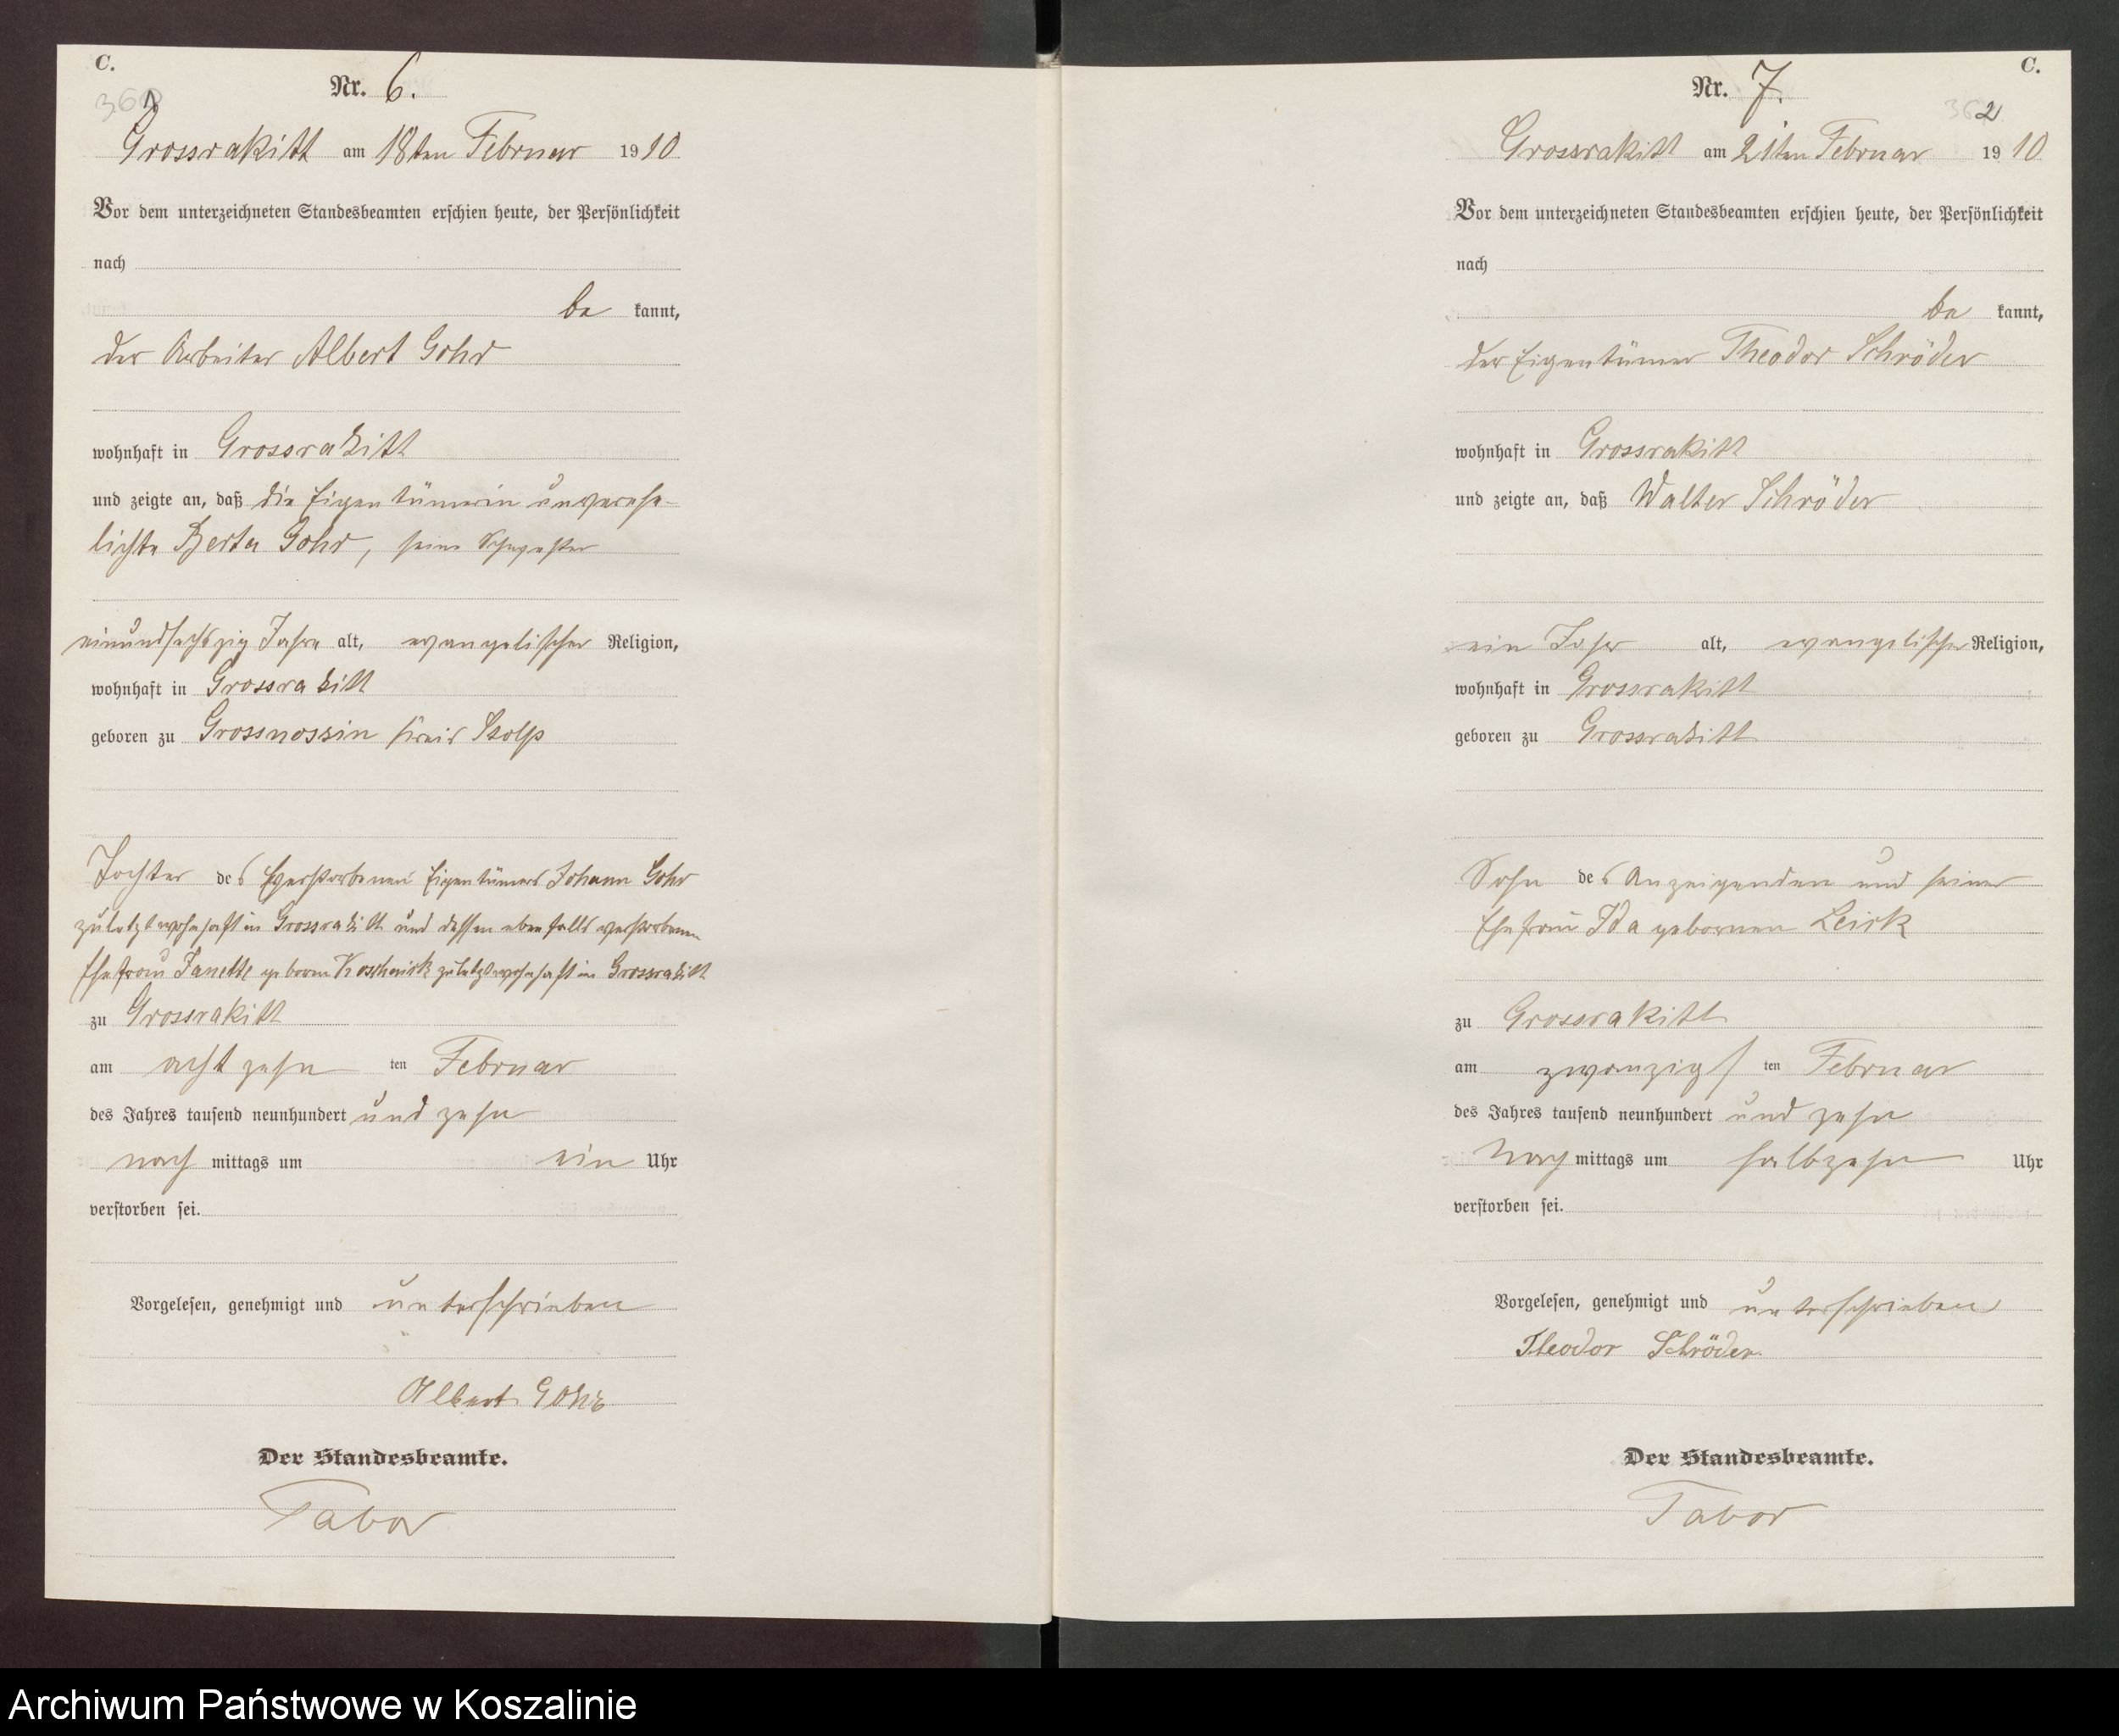 C.
Nr. 6.
Grossrakitt am 18ten Februar 1910
Vor dem unterzeichneten Standesbeamten erschien heute, der Persönlichkeit
nach
be kannt,
der Arbeiter Albert Gohr
wohnhaft in Grossrakitt
und zeigte an, daß die Eigentümerin unverehe-
lichte Berta Gohr, seine Schwester
einundsechszig Jahre alt, evangelischer Religion,
wohnhaft in Grossrakitt
geboren zu Grossnossin Kreis Stolp
Tochter des verstorbenen Eigentümers Johann Gohr
zuletzt wohnhaft in Grossrakitt und dessen ebenfalls verstorbenen
Ehefrau Janette geboren zuletzt wohnhaft in Grossrakitt
zu Grossrakitt
am acht zehn ten Februar
des Jahres tausend neunhundert und zehn
nach mittags um ein Uhr
verstorben sei.
Vorgelesen, genehmigt und unterschrieben
Albert Gohr
Der Standesbeamte.
Tabor
C.
Nr. 7.
362
Grossrakitt am 21ten Februar 1910
Vor dem unterzeichneten Standesbeamten erschien heute, der Persönlichkeit
nach
be kannt,
der Eigentümer Theodor Schröder
wohnhaft in Grossrakitt
und zeigte an, daß Walter Schröder
ein Jahr alt, evangelischer Religion,
wohnhaft in Grossrakitt
geboren zu Grossrakitt
Sohn des Anzeigenden und seiner
Ehefrau Ida gebornen Leick
zu Grossrakitt
am zwanzigs ten Februar
des Jahres tausend neunhundert und zehn
Nach mittags um halbzehn Uhr
verstorben sei.
Vorgelesen, genehmigt und unterschrieben
Theodor Schröder.
Der Standesbeamte.
Tabor
Archiwum Państwowe w Koszalinie